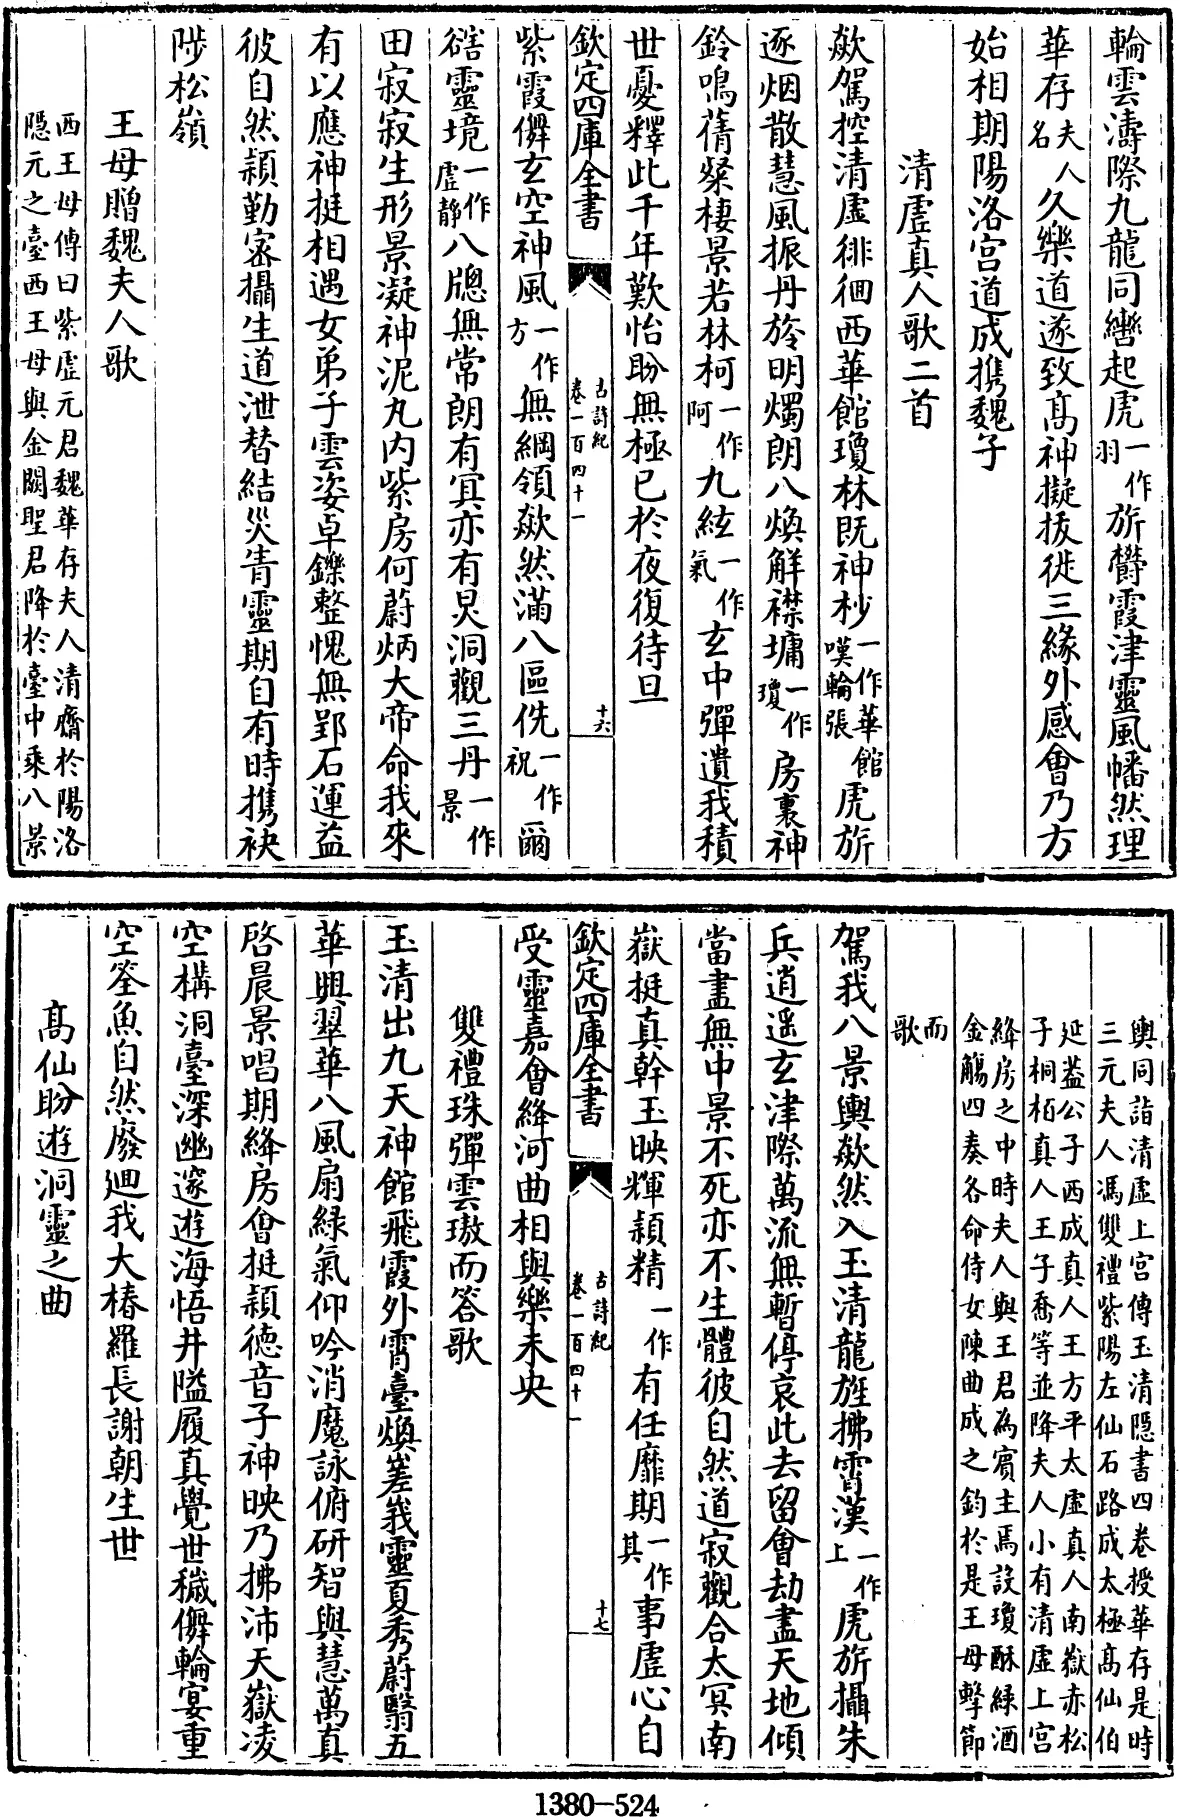 輪雲濤際九龍同轡起虎一作羽旂欝霞津靈風幡然理
華存夫人名久樂道遂致髙神擬拔徙三緣外感會乃方
始相期陽洛宫道成携魏子
清虛真人歌二首
歘駕控清虛徘徊西華館瓊林既神杪一作華館嘆輪張虎旂
逐烟散慧風振丹旍明燭朗八煥解襟墉一作瓊房裏神
鈴鳴蒨粲棲景若林柯一作阿九絃一作氣玄中彈遺我積
世憂釋此千年歎怡盼無極已於夜復待旦
欽定四庫全書
古詩紀
卷一百四十一
十六
紫霞儛玄空神風一作方無綱領歘然滿八區侁一作祝爾
豁靈境一作虛静八牕無常朗有冥亦有炅洞觀三丹一作景
田寂寂生形景凝神泥丸内紫房何蔚炳大帝命我來
有以應神挺相遇女弟子雲姿卓鑠整愧無郢石運益
彼自然頴勤密攝生道泄替結災眚靈期自有時携袂
陟松嶺
王母贈魏夫人歌
西王母傳曰紫虛元君魏華存夫人清齋於陽洛
隱元之臺西王母與金闕聖君降於臺中乘八景
輿同詣清虛上宫傳玉清隱書四卷授華存是時
三元夫人馮雙禮紫陽左仙石路成太極髙仙伯
延蓋公子西成真人王方平太虛真人南嶽赤松
子桐栢真人王子喬等並降夫人小有清虛上宫
絳房之中時夫人與王君為賔主焉設瓊酥綠酒
金觴四奏各命侍女陳曲成之鈞於是王母擊節
而歌
駕我八景輿歘然入玉清龍旌拂霄漢一作上虎旂攝朱
兵逍遥玄津際萬流無暫停哀此去留會劫盡天地傾
當盡無中景不死亦不生體彼自然道寂觀合太冥南
嶽挺真幹玉映輝頴精一作有任靡期一作其事虛心自
欽定四庫全書
古詩紀
卷一百四十一
十七
受靈嘉會絳河曲相與樂未央
雙禮珠彈雲璈而答歌
玉清出九天神館飛霞外霄臺煥嵳峩靈夏秀蔚翳五
華興翠華八風扇緑氣仰吟消魔詠俯研智與慧萬真
啓晨景唱期絳房會挺頴德音子神映乃拂沛天嶽凌
空構洞臺深幽邃遊海悟井隘履真覺世穢儛輪宴重
空筌魚自然廢廻我大椿羅長謝朝生世
髙仙盼遊洞靈之曲
1380-524